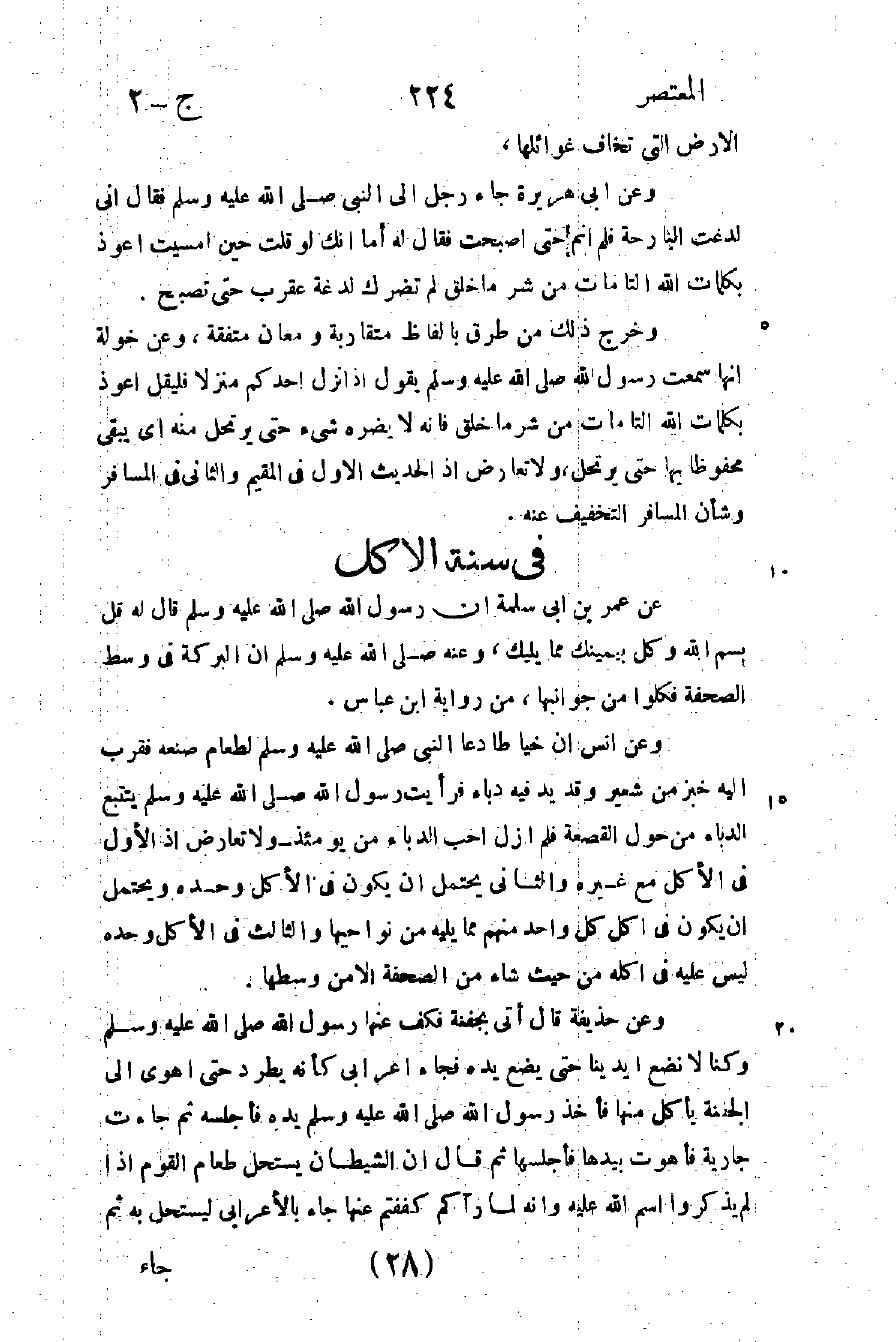 المعتصر ٢٢٤ ج – ٢
الارض التي تخاف غوائلها ،
وعن ابي هريرة جاء رجل الى النبي صلى الله عليه وسلم فقال انى
لدغت البارحة فلم انم حتى اصبحت فقال له أما انك لو قلت حين امسيت اعوذ
بكلمات الله التامات من شر ماخلق لم تضرك لدغة عقرب حتى تصبح .
وخرج ذلك من طرق بالفاظ متقاربة و معان متفقة ، وعن خولة ٥
انها سمعت رسول الله صلى الله عليه وسلم يقول اذا نزل احدكم منزلا فليقل اعوذ
بكلمات الله التامات من شر ماخلق فانه لا يضره شىء حتى يرتحل منه اى يبقى
محفوظا بها حتى يرتحل ، ولا تعارض اذ الحديث الاول فى المقيم والثانى فى المسافر
وشأن المسافر التخفيف عنه .
فى سنة الاكل ١٠
عن عمر بن ابى سلمة ان رسول الله صلى الله عليه وسلم قال له قل
بسم الله وكل بيمينك مما يليك ، وعنه صلى الله عليه وسلم ان البركة فى وسط
الصحفة فكلوا من جوانبها ، من رواية ابن عباس .
وعن انس ان خياطا دعا النبى صلى الله عليه وسلم لطعام صنعه فقرب
اليه خبز من شعير وقديد فيه دباء فرأيت رسول الله صلى الله عليه وسلم يتتبع ١٥
الدباء من حول القصعة فلم ازل احب الدباء من يومئذ – ولا تعارض اذ الأول
فى الأكل مع غيره والثانى يحتمل ان يكون فى الأكل وحده ويحتمل
ان يكون فى اكل كل واحد منهم مما يليه من نواحيها والثالث فى الأكل وحده
ليس عليه فى اكله من حيث شاء من الصحفة الا من وسطها .
وعن حذيفة قال أتى بجفنة فكف عنها رسول الله صلى الله عليه وسلم ٢٠
وكنا لا نضع ايدينا حتى يضع يده فجاء اعرابى كأنه يطرد حتى اهوى الى
الجفنة يأكل منها فأخذ رسول الله صلى الله عليه وسلم يده فأجلسه ثم جاءت
جارية فأهوت بيدها فأجلسها ثم قال ان الشيطان يستحل طعام القوم اذا
لم يذكروا اسم الله عليه وانه لما رآكم كففتم عنها جاء بالأعرابى ليستحل به ثم
(٢٨) جاء